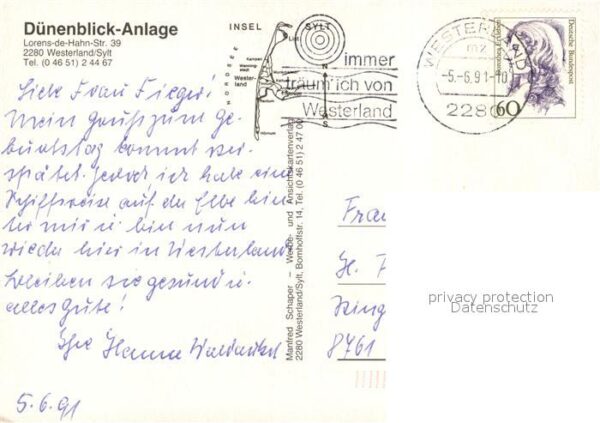 Dünenblick-Anlage
Lorens-de-Hahn-Str. 39
2280 Westerland/Sylt
Tel. (0 46 51) 2 44 67
INSEL SYLT
NORDSEE
List
Kampen
Wenningstedt
Westerland
Hörnum
N
S
immer
träum ich von
Westerland
WESTERLAND
mz
-5.-6.91-10
2280
60
Deutsche Bundespost
Liebe Frau Fieger!
Mein Gruß zum Ge-
burtstag kommt ver-
spätet. Jedoch ich habe eine
Schiffsreise auf der Elbe hin-
ter mir u. bin nun
wieder hier in Westerland.
Bleiben sie gesund u.
alles Gute!
Ihre Hanna
5.6.91
Manfred Schaper – Werbe- und Ansichtskartenverlag
2280 Westerland/Sylt, Bomhoffstr. 14, Tel. (0 46 51) 2 47 00
Frau
H. F
Ring
8761
privacy protection
Datenschutz